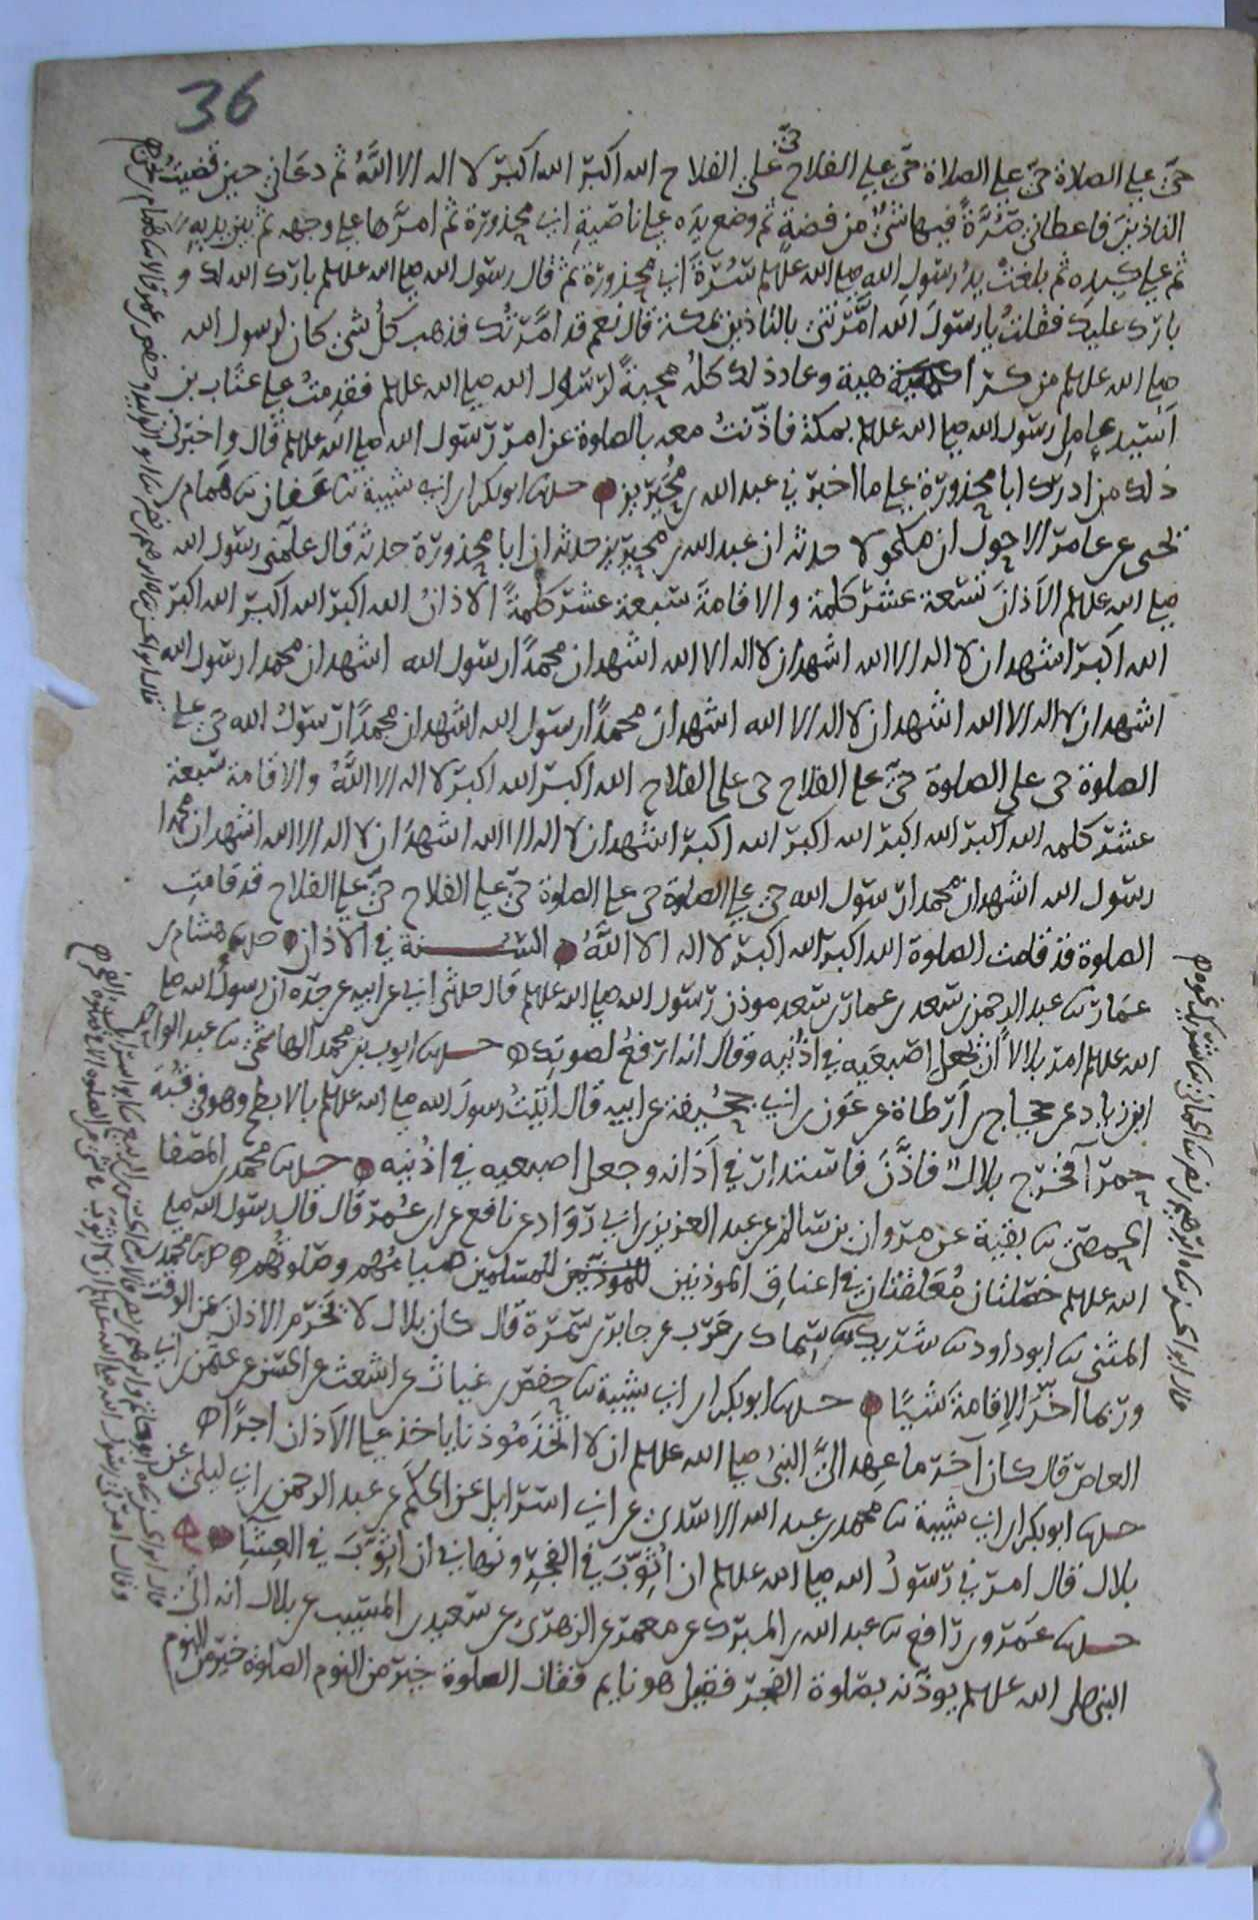 36
حيّ علي الصلاة حيّ علي الصلاة حيّ علي الفلاح حيّ علي الفلاح الله اكبر الله اكبر لا اله الا اللّهُ ثم دعاني حين قضيتُ
التاذينَ فاعطاني صُرَّةً فيها شيٌ من فضةٍ ثم وضع يده علي ناصية ابي محذورة ثم امرّها علي وجهه ثم بين يديه
ثم علي كبده ثم بلغتْ يدُ رسول الله صلي الله عليه وسلم سُرّةَ ابي محذورة ثم قال رسول الله صلي الله عليه وسلم بارك الله لك و
بارك عليك فقلتُ يا رسولَ الله امّرتني بالتاذين بمكة قال نعم قد امّرتُك فذهب كلُ شي كان لرسول الله
صلي الله عليه وسلم من كراهية وعاد ذلك كلُه محبةً لرسول الله صلي الله عليه وسلم فقدِمتُ علي عتاب بن
اَسِيد عامِلِ رسول الله صلي الله عليه وسلم بمكة فاذّنتُ معه بالصلوة عن امر رسول الله صلي الله عليه وسلم قال واخبرني
ذلك من ادرك ابا محذورة علي ما اخبرني عبد الله بن مُحَيريز حدثنا ابو بكر ابن ابي شيبة ثنا عفان ثنا همام بن
يحيى عن عامر الاحول ان مكحولا حدثه ان عبد الله بن محيريز حدثه ان ابا محذورة حدثه قال علّمني رسول الله
صلي الله عليه وسلم الاَذانَ تسعة عشر كلمة والاقامةَ سبعة عشر كلمةً الاذانُ الله اكبر الله اكبر الله اكبر
الله اكبر اشهد ان لا اله الا الله اشهد ان لا اله الا الله اشهد ان محمدًا رسول الله اشهد ان محمدا رسول الله
اشهد ان لا اله الا الله اشهد ان لا اله الا الله اشهد ان محمدًا رسول الله اشهد ان محمدًا رسولُ الله حي علي
الصلوة حي علي الصلوة حيّ علي الفلاح حي علي الفلاح الله اكبر الله اكبر لا اله الا اللّهُ والاقامة سبعة
عشر كلمه الله اكبر الله اكبر الله اكبر الله اكبر اشهد ان لا اله الا الله اشهد ان لا اله الا الله اشهد ان محمدا
رسول الله اشهد ان محمدا رسول الله حي علي الصلوة حي علي الصلوة حيّ علي الفلاح حيّ علي الفلاح قد قامتِ
الصلوة قد قامت الصلوة الله اكبر الله اكبر لا اله الا اللّهُ السنة في الاذان حدثنا هشام بن
عمار ثنا عبد الرحمن بن سعد بن عمار بن سعد موذن رسول الله صلي الله عليه وسلم قال حدثني ابي عن ابيه عن جده ان رسول الله صلي
الله عليه وسلم امر بلالاً ان يجعل اصبعَيه في اذُنيه وقال انه ارفعُ لصوتِك حدثنا ايوب بن محمد الهاشمي ثنا عبد الواحد
ابن زياد عن حجاج بن اَرْطاة عن عَون بن ابي جُحَيفة عن ابيه قال اتيتُ رسولَ الله صلي الله عليه وسلم بالابطح وهو في قبّة
حمرآ فخرج بلالٌ فاذّنَ فاستدار في اَذانه وجعل اصبعيه في اذُنيه حدثنا محمد بن المصفا
الحِمصيّ ثنا بقية عن مروان بن سالم عن عبد العزيز بن ابي روّاد عن نافع عن ابن عُمر قال قال رسول الله صلي
الله عليه وسلم خصلتان مُعَلّقتان في اعناق الموذنين للمسلمين صيامُهم وصلوتُهم حدثنا محمد بن
المثني ثنا ابو داود ثنا شريك عن سِماك بن حَرْب عن جابر بن سَمُرة قال كان بلال لا يخرم الاذانَ عن الوقت
وربما اخّر الاِقامةَ شَيئًا حدثنا ابو بكر ابن ابي شيبة ثنا حفص بن غياث عن اشعث عن الحسن عن عثمن بن ابي
العاص قال كان آخر ما عهد اليَّ النبيُ صلي الله عليه وسلم ان لا اتّخذَ مُوذنا ياخذ علي الاَذان اجرًا
حدثنا ابو بكر ابن ابي شيبة ثنا محمد بن عبد الله الاسدي عن ابي اسرايل عن الحكَم عن عبد الرحمن بن ابي ليلي عن
بلال قال امرني رسولُ الله صلي الله عليه وسلم ان اُثوّبَ في الفجرِ ونهاني ان اثوّبَ في العِشاءِ
حدثنا عمرو بن رافع ثنا عبد الله بن المبرك عن معمر عن الزهري عن سعيد بن المسيب عن بلال انه اتي
النبي صلى الله عليه وسلم يوذنه بصلوة الفجر فقيل هو نايم فقال الصلوة خير من النوم الصلوة خير من النوم